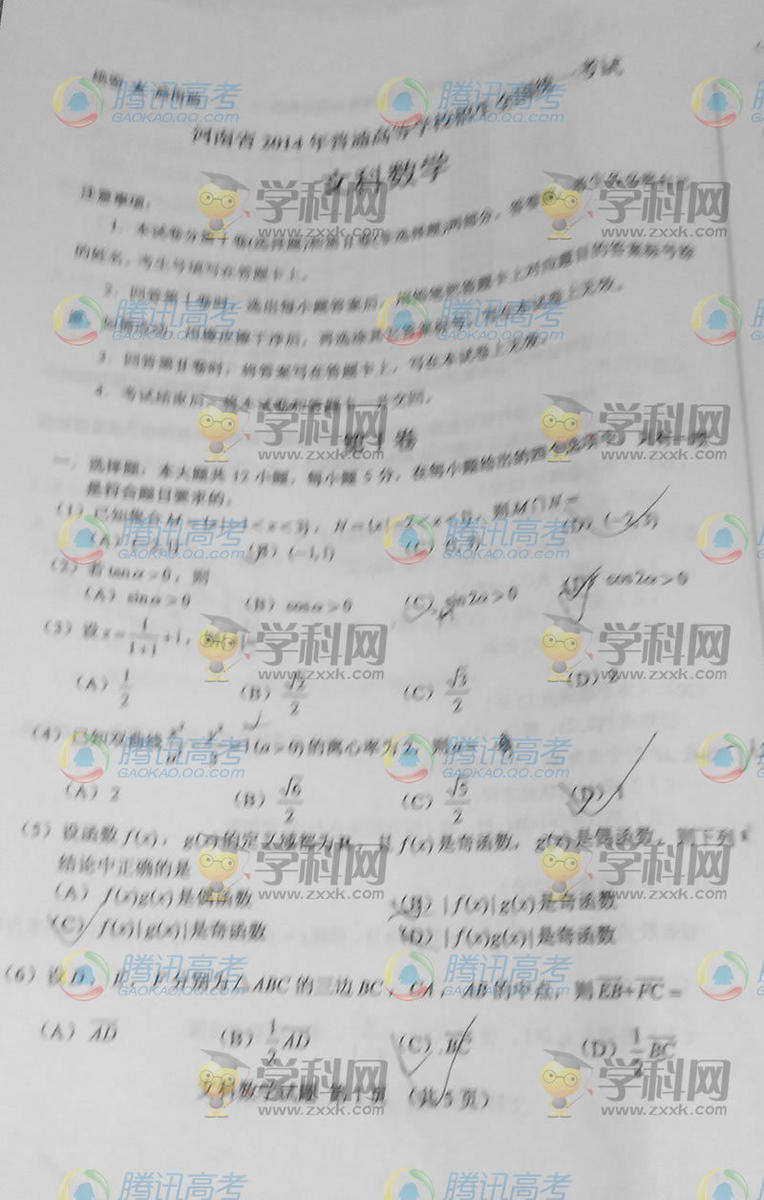 河南省 2014 年普通高等学校招生全国统一考试
文科数学
注意事项:
1. 本试卷分第Ⅰ卷(选择题)和第Ⅱ卷(非选择题)两部分,
的姓名、考生号填写在答题卡上。
2. 回答第Ⅰ卷时, 选出每小题答案后, 用铅笔把答题卡上对应题目的答案标号
3. 回答第Ⅱ卷时, 将答案写在答题卡上, 写在本试卷上无效。
4. 考试结束后, 将本试卷和答题卡一并交回。
第Ⅰ卷
一. 选择题: 本大题共 12 小题, 每小题 5 分, 在每小题给出的四个选项中, 只有一项
是符合题目要求的。
(1) 已知集合 M={x|-1<x<3}, N={x|-2<x<1}, 则 M∩N=
(B) (-1,1) (C) (1,3) (D) (-2,3)
(2) 若 tanα>0, 则
(A) sinα>0 (B) cosα>0 (C) sin2α>0 (D) cos2α>0
(3) 设 z=1/(1+i)+i, 则|z|=
(A) 1/2 (B) √2/2 (C) √3/2 (D) 2
(4) 已知双曲线 x²/a²-y²/3=1(a>0)的离心率为 2, 则 a=
(A) 2 (B) √6/2 (C) √5/2 (D) 1
(5) 设函数 f(x), g(x)的定义域都为 R, 且 f(x)是奇函数, g(x)是偶函数, 则下列
结论中正确的是
(A) f(x)g(x)是偶函数 (B) |f(x)|g(x)是奇函数
(C) f(x)|g(x)|是奇函数 (D) |f(x)g(x)|是奇函数
(6) 设 D, E, F 分别为△ABC 的三边 BC, CA, AB 的中点, 则 EB+FC=
(A) AD (B) 1/2 AD (C) BC (D) 1/2 BC
文科数学试题 第 1 页 (共 5 页)
腾讯高考
GAOKAO.QQ.COM
学科网
www.zxxk.com